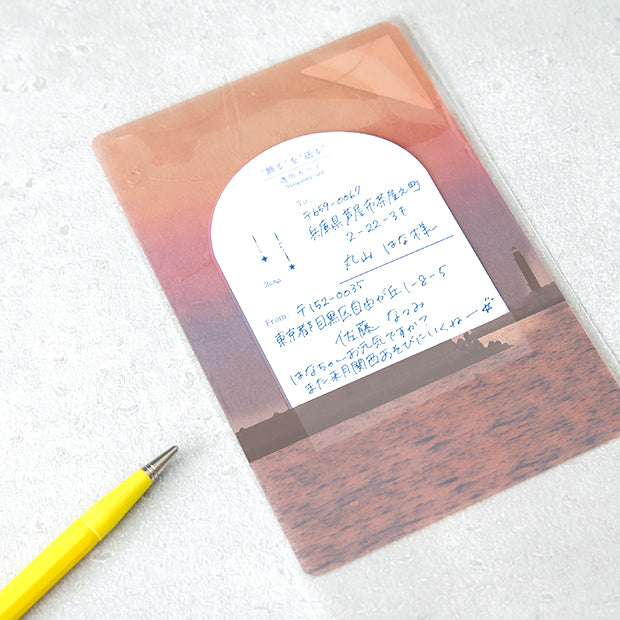 "飾る"を"送る"
透明カード
To
〒659-0067
兵庫県芦屋市茶屋之町
2-22-3F
丸山 はな様
From 〒152-0035
東京都目黒区自由が丘1-8-5
佐藤 なつみ
はなちゃーんお元気ですかっ
また来月関西あそびにいくねー